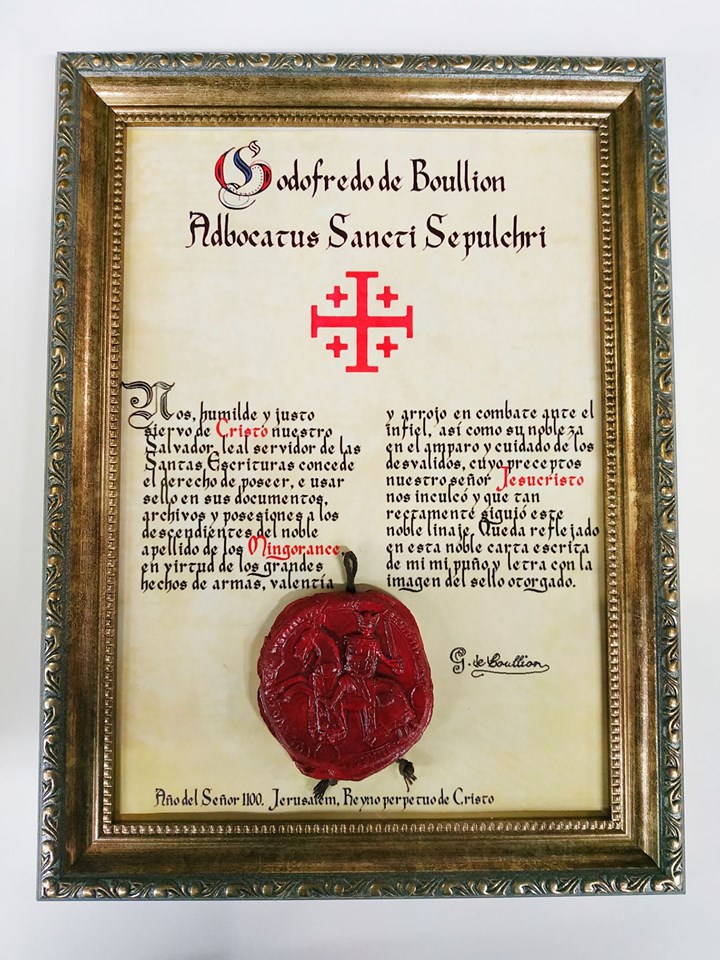 Godofredo de Boullion
Adbocatus Sancti Sepulchri
Nos, humilde y justo
siervo de Cristo nuestro
Salvador, leal servidor de las
Santas Escrituras concede
el derecho de poseer, e usar
sello en sus documentos,
archivos y posesiones a los
descendientes del noble
apellido de los Mingorance,
en virtud de los grandes
hechos de armas, valentía
y arrojo en combate ante el
infiel, así como su nobleza
en el amparo y cuidado de los
desvalidos, cuyo preceptos
nuestro señor Jesucristo
nos inculcó y que tan
rectamente siguió este
noble linaje. Queda reflejado
en esta noble carta escrita
de mi mi puño y letra con la
imagen del sello otorgado.
G. de Boullion
Año del Señor 1100. Jerusalem, Reyno perpetuo de Cristo